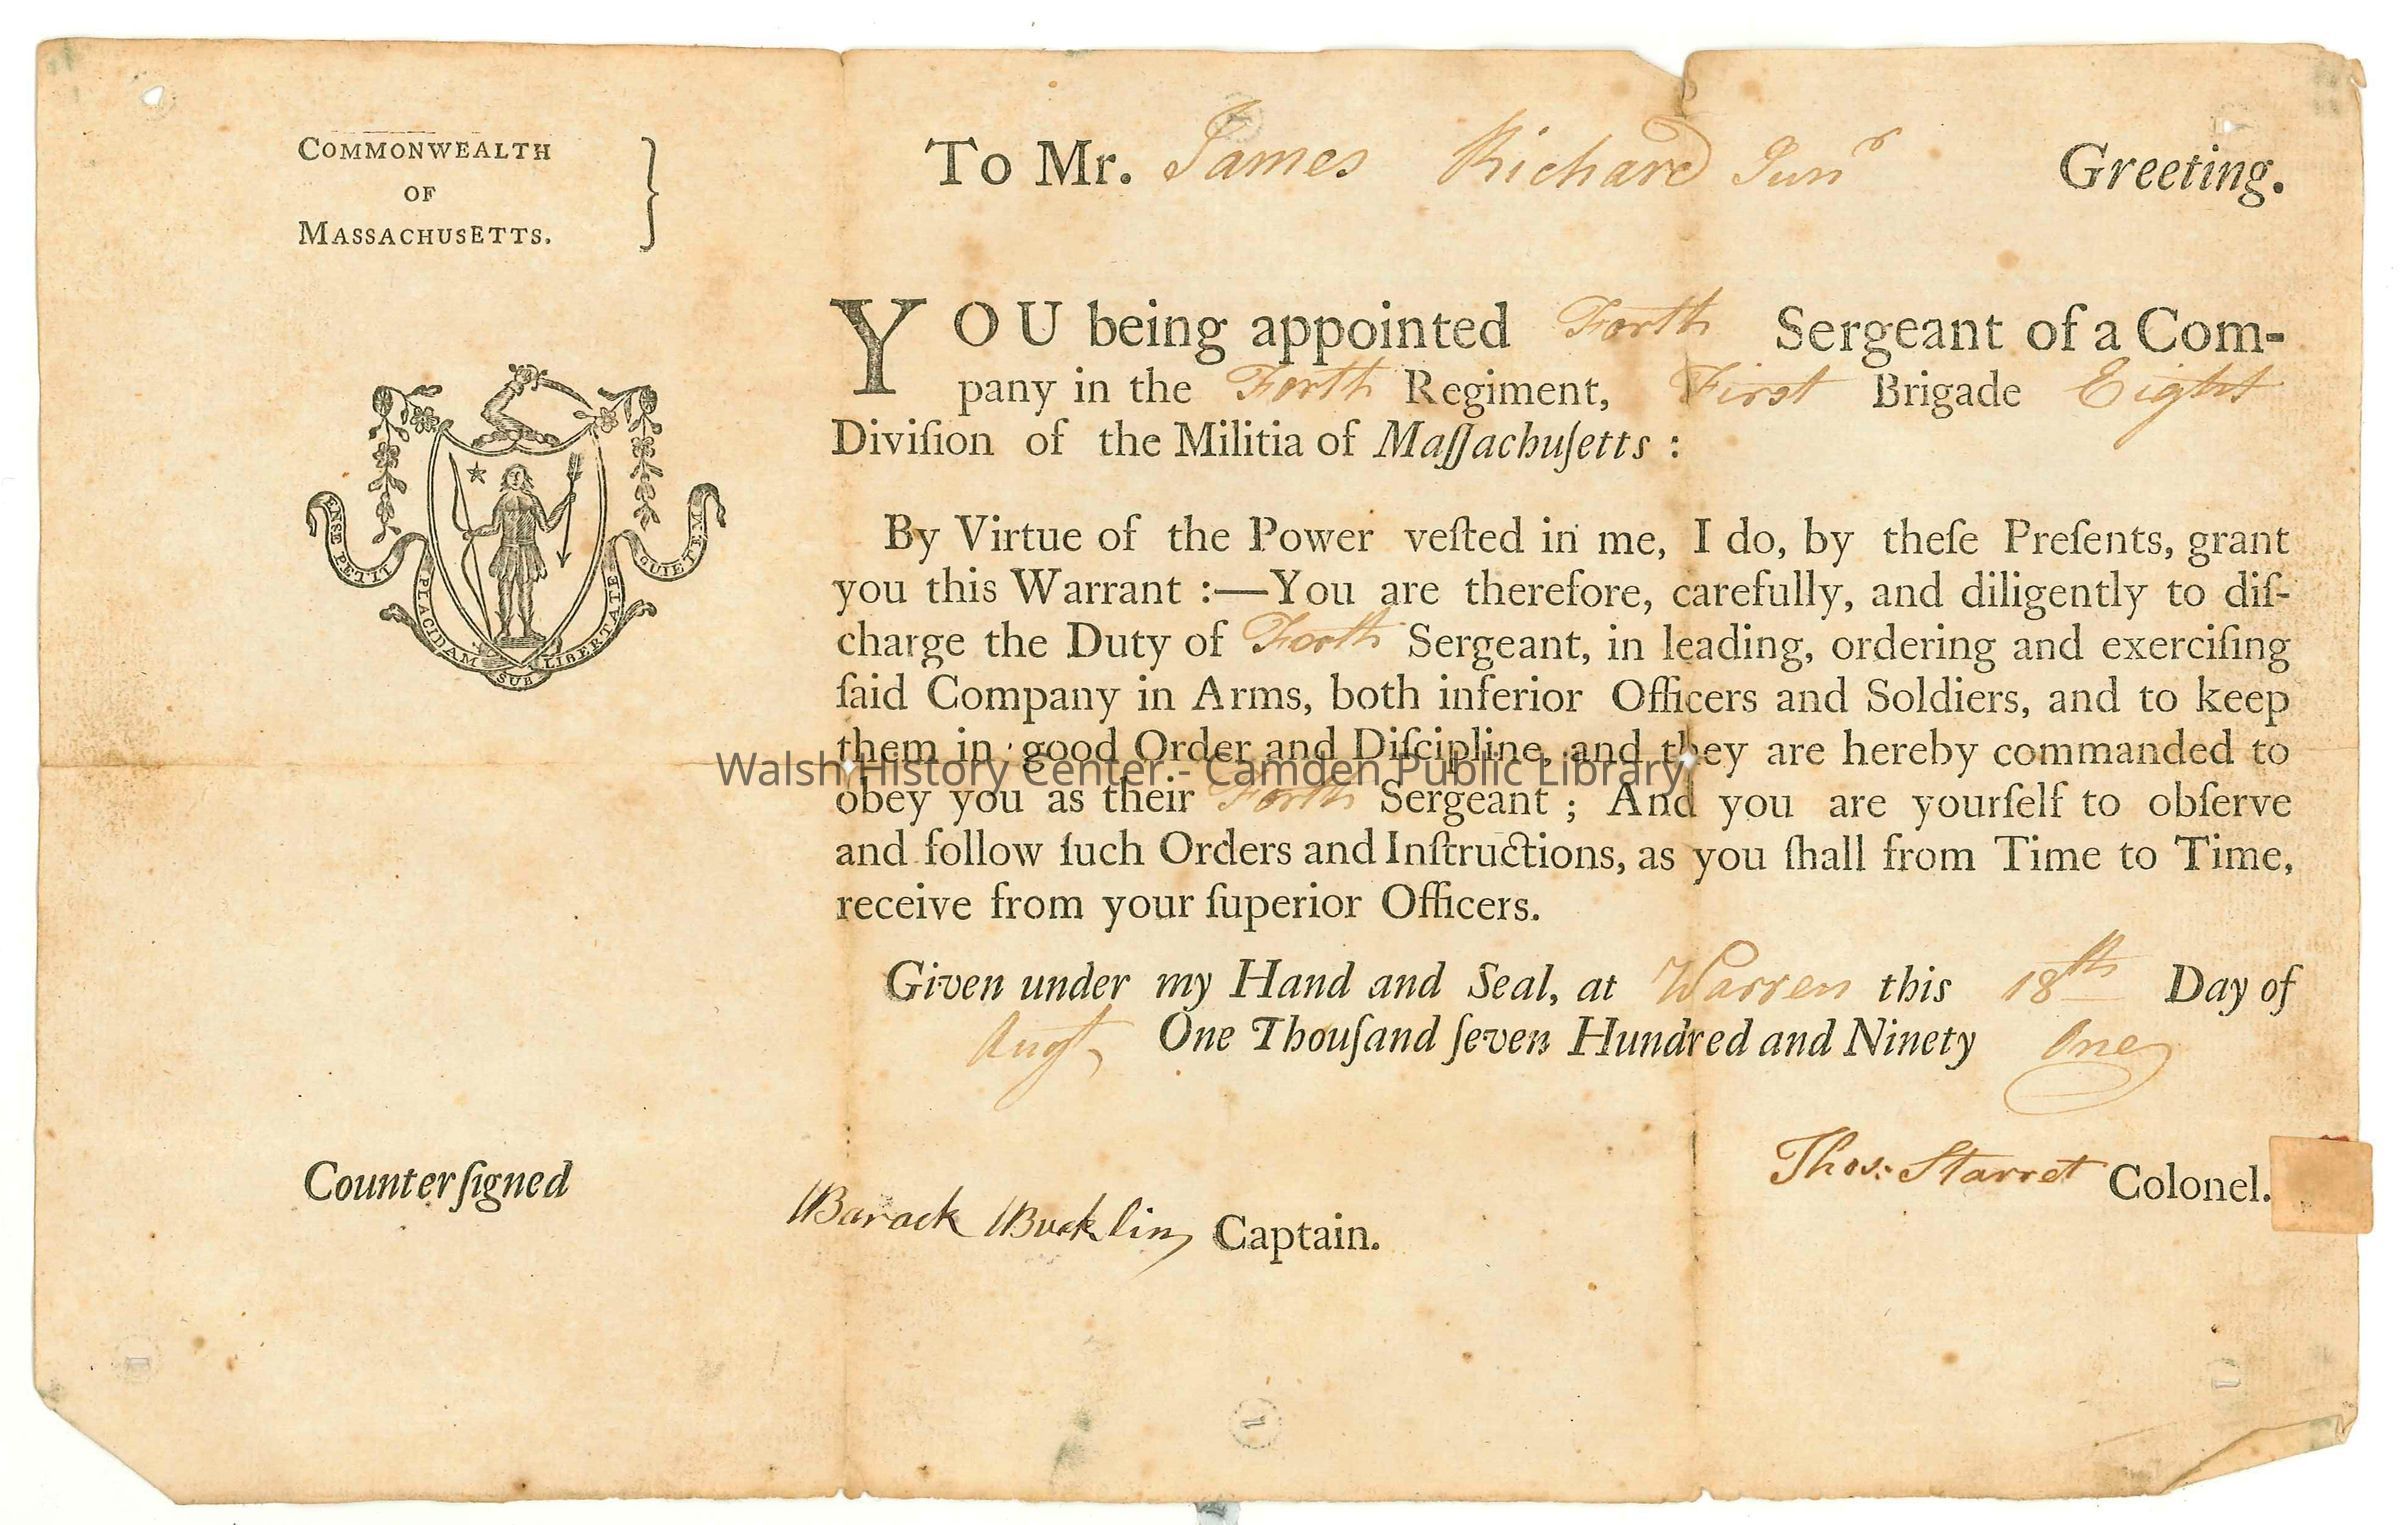 COMMONWEALTH
OF
MASSACHUSETTS.
To Mr. James Richard Junr Greeting.
YOU being appointed Forth Sergeant of a Com-
pany in the Forth Regiment, First Brigade Eight
Diviſion of the Militia of Maſſachuſetts :
ENSE PETIT PLACIDAM SUB LIBERTATE QUIETEM
By Virtue of the Power veſted in me, I do, by theſe Preſents, grant
you this Warrant :—You are therefore, carefully, and diligently to diſ-
charge the Duty of Forth Sergeant, in leading, ordering and exerciſing
ſaid Company in Arms, both inferior Officers and Soldiers, and to keep
them in good Order and Diſcipline, and they are hereby commanded to
Walsh History Center - Camden Public Library
obey you as their Forth Sergeant ; And you are yourſelf to obſerve
and follow ſuch Orders and Inſtructions, as you ſhall from Time to Time,
receive from your ſuperior Officers.
Given under my Hand and Seal, at Warren this 18th Day of
Augt, One Thouſand ſeven Hundred and Ninety One
Thos: Starret Colonel.
Counterſigned
Barack Bucklin, Captain.